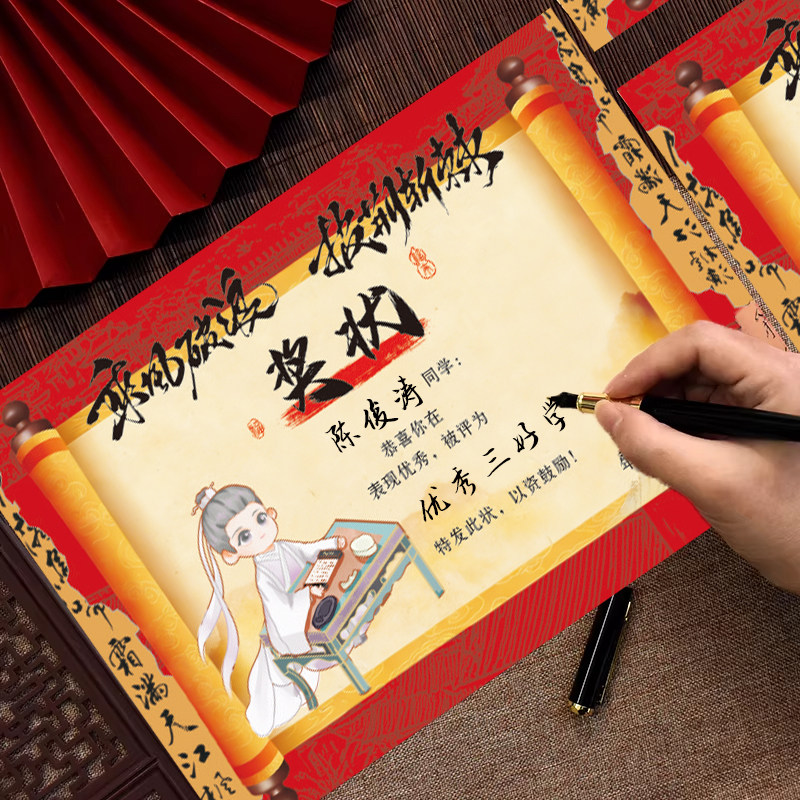 乘风破浪 披荆斩棘
奖状
陈俊涛同学：
恭喜你在
表现优秀，被评为
优秀三好学
特发此状，以资鼓励！
年
霜满天江
霜满天